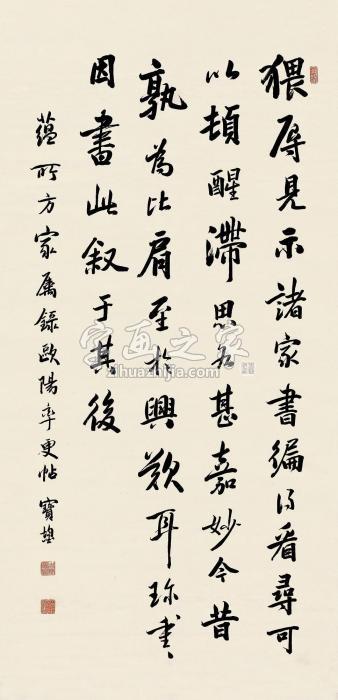 猥辱見示諸家書編得看尋可
以頓醒滯思尤甚嘉妙今昔
孰為比肩至於興歎耳珎書〻
因書此叙于其後
蘊所方家属錄歐陽率更帖 寶熙
字画之家
zihuazhijia.com